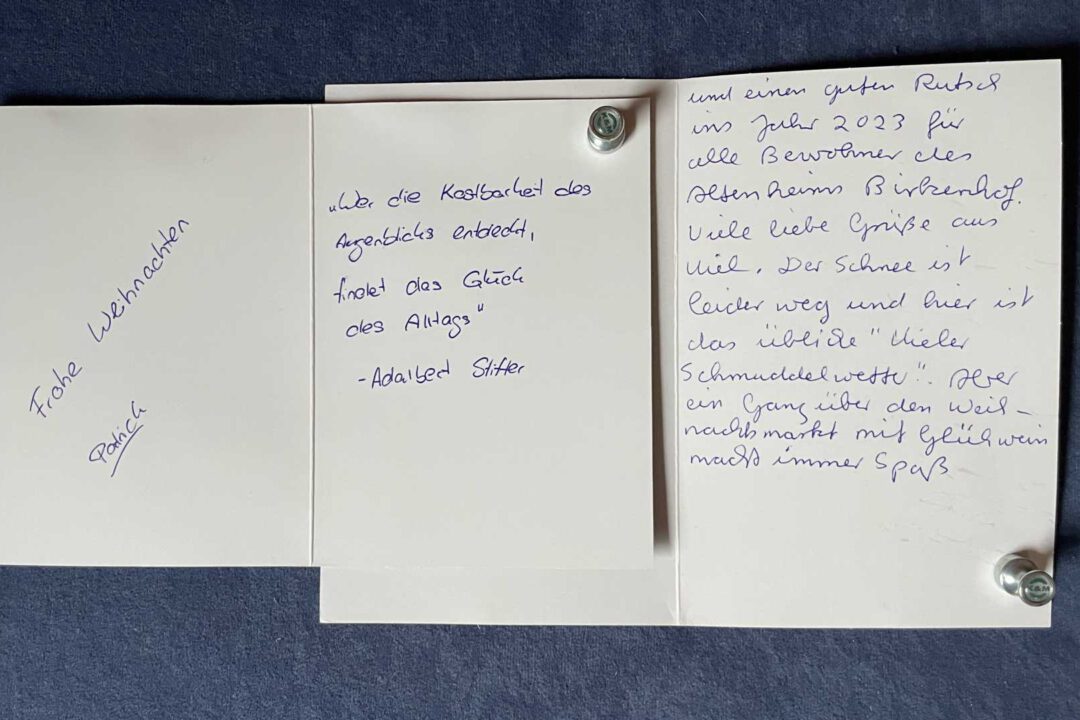 Frohe Weihnachten
Patrick
"Wer die Kostbarkeit des
Augenblicks entdeckt,
findet das Glück
des Alltags"
- Adalbert Stifter
und einen guten Rutsch
ins Jahr 2023 für
alle Bewohner des
Altenheims Birkenhof.
Viele liebe Grüße aus
Kiel. Der Schnee ist
leider weg und hier ist
das übliche "Kieler
Schmuddelwetter". Aber
ein Gang über den Weih-
nachtsmarkt mit Glühwein
macht immer Spaß